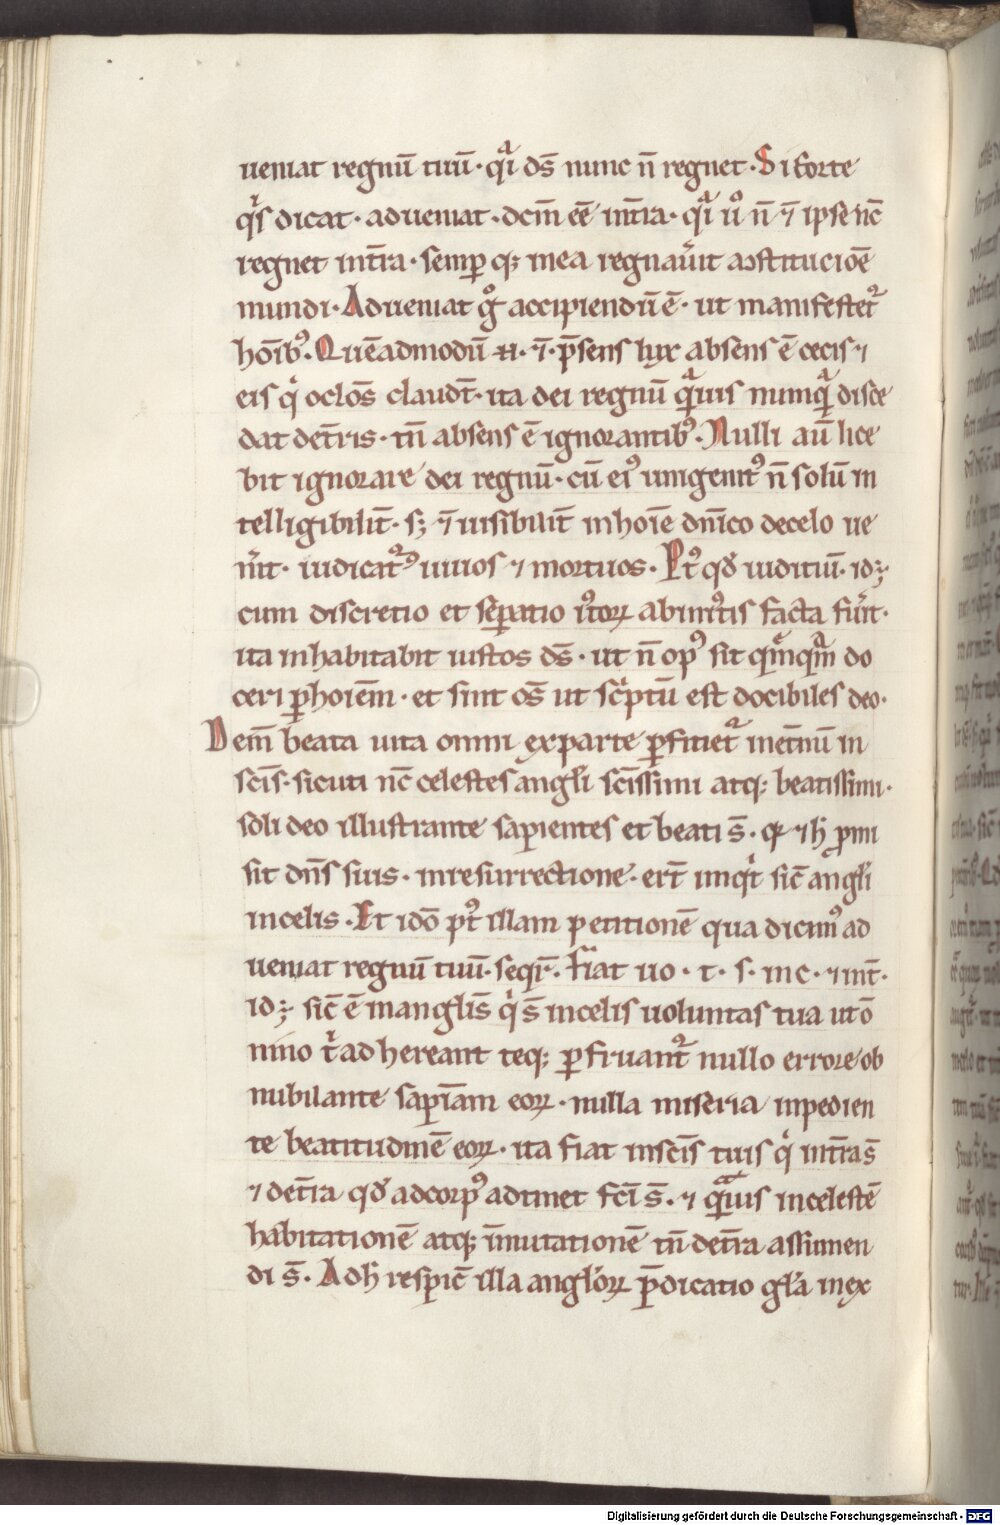 ueniat regnū tuū · qͣi ds̄ nunc n̄ regnet · Si forte
qͥs dicat · adueniat · dcm̄ eē int̄ra · qͣi ūͦ n̄ ⁊ ipse nc̄
regnet int̄ra · semꝑ qꝫ in ea regnauͥit a ↄstitucioē
mundi · Adueniat gͦ accipiendū ē · ut manifestet᷑
hoīb᷒ · Quēadmodū n̄ · ⁊ · p̄sens lux absens ē cecis ⁊
eis qͥ oclos̄ claudt̄ · ita dei regnū qͣuis numqͣ disce
dat det̄ris · tn̄ absens ē ignorantib᷒ · Nulli aū lice
bit ignorare dei regnū · cū ei᷒ unigenit᷒ n̄ solū in
telligibilit̄ · sꝫ ⁊ uisibilit̄ in hoīe dn̄ico de celo ue
nͥit · iudicat᷒ uiuos ⁊ mortuos · Pt᷒ qd̄ iuditiū · idꝫ
cum discretio et seꝑatio iͦtoꝝ ab iniͦtis facta fuͥit ·
ita inhabitabit iustos ds̄ · ut n̄ op᷒ sit qͣmqͣm do
ceri ꝑ hoiēm · et sint os̄ ut scͥptū est docibiles deo ·
Dem̄ beata uita omni ex parte ꝑficiet᷑ in et̄nū in
scīs · sicuti nc̄ celestes angl̄i scīssimi atqꝫ beatissimi ·
soli deo illustrante sapientes et beati s̄ · qꝛ ⁊ h̄ ꝓmi
sit dn̄s suis · in resurrectione · ert̄ inqͥt sic̄ angl̄i
in celis · Et idō pt̄ illam petitionē qua dicim᷒ ad
ueniat regnū tuū · seqr̄ · Fiat uo · t · s · in c · ⁊ int̄ ·
idꝫ sic̄ ē in anglis̄ qͥ s̄ in celis uoluntas tua ut ō
nino tͥ adhereant teqꝫ ꝑfruant᷑ nullo errore ob
nubilante sapīam eoꝝ · nulla miseria inpedien
te beatitudinē eoꝝ · ita fiat in scīs tuis qͥ int̄ra s̄
⁊ det̄ra qd̄ ad corp᷒ adtinet fcī s̄ · ⁊ qͣuis in celestē
habitationē atqꝫ īmutationē tn̄ det̄ra assumen
di s̄ · Ad h̄ respic̄ illa angl̄oꝝ p̄dicatio gl̄a in ex
Digitalisierung gefördert durch die Deutsche Forschungsgemeinschaft - DFG